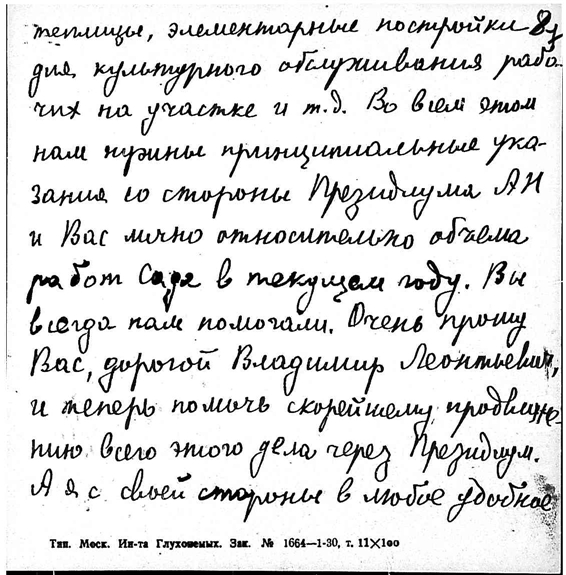 теплицы, элементарные постройки
для культурного обслуживания рабо-
чих на участке и т.д. Во всем этом
нам нужны принципиальные ука-
зания со стороны Президиума АН
и Вас лично относительно объема
работ Сада в текущем году. Вы
всегда нам помогали. Очень прошу
Вас, дорогой Владимир Леонтьевич,
и теперь помочь скорейшему продвиже-
нию всего этого дела через Президиум.
А я с своей стороны в любое удобное
Тип. Моск. Ин-та Глухонемых. Зак. № 1664—1-30, т. 11×100